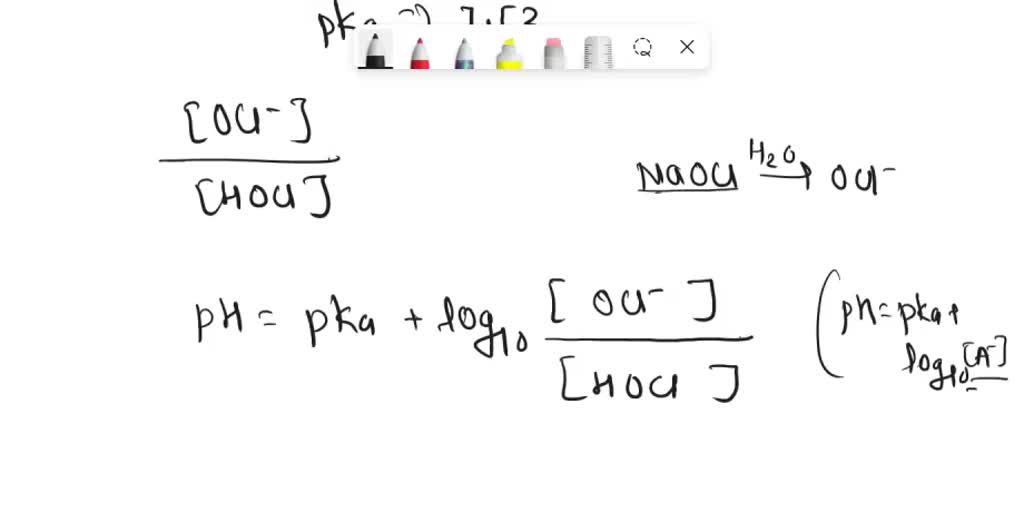 pka
[OCl⁻]
[HOCl]
NaOCl H₂O → OCl⁻
pH = pka + log₁₀ [OCl⁻]
[HOCl]
(pH = pka +
log₁₀ [A⁻]